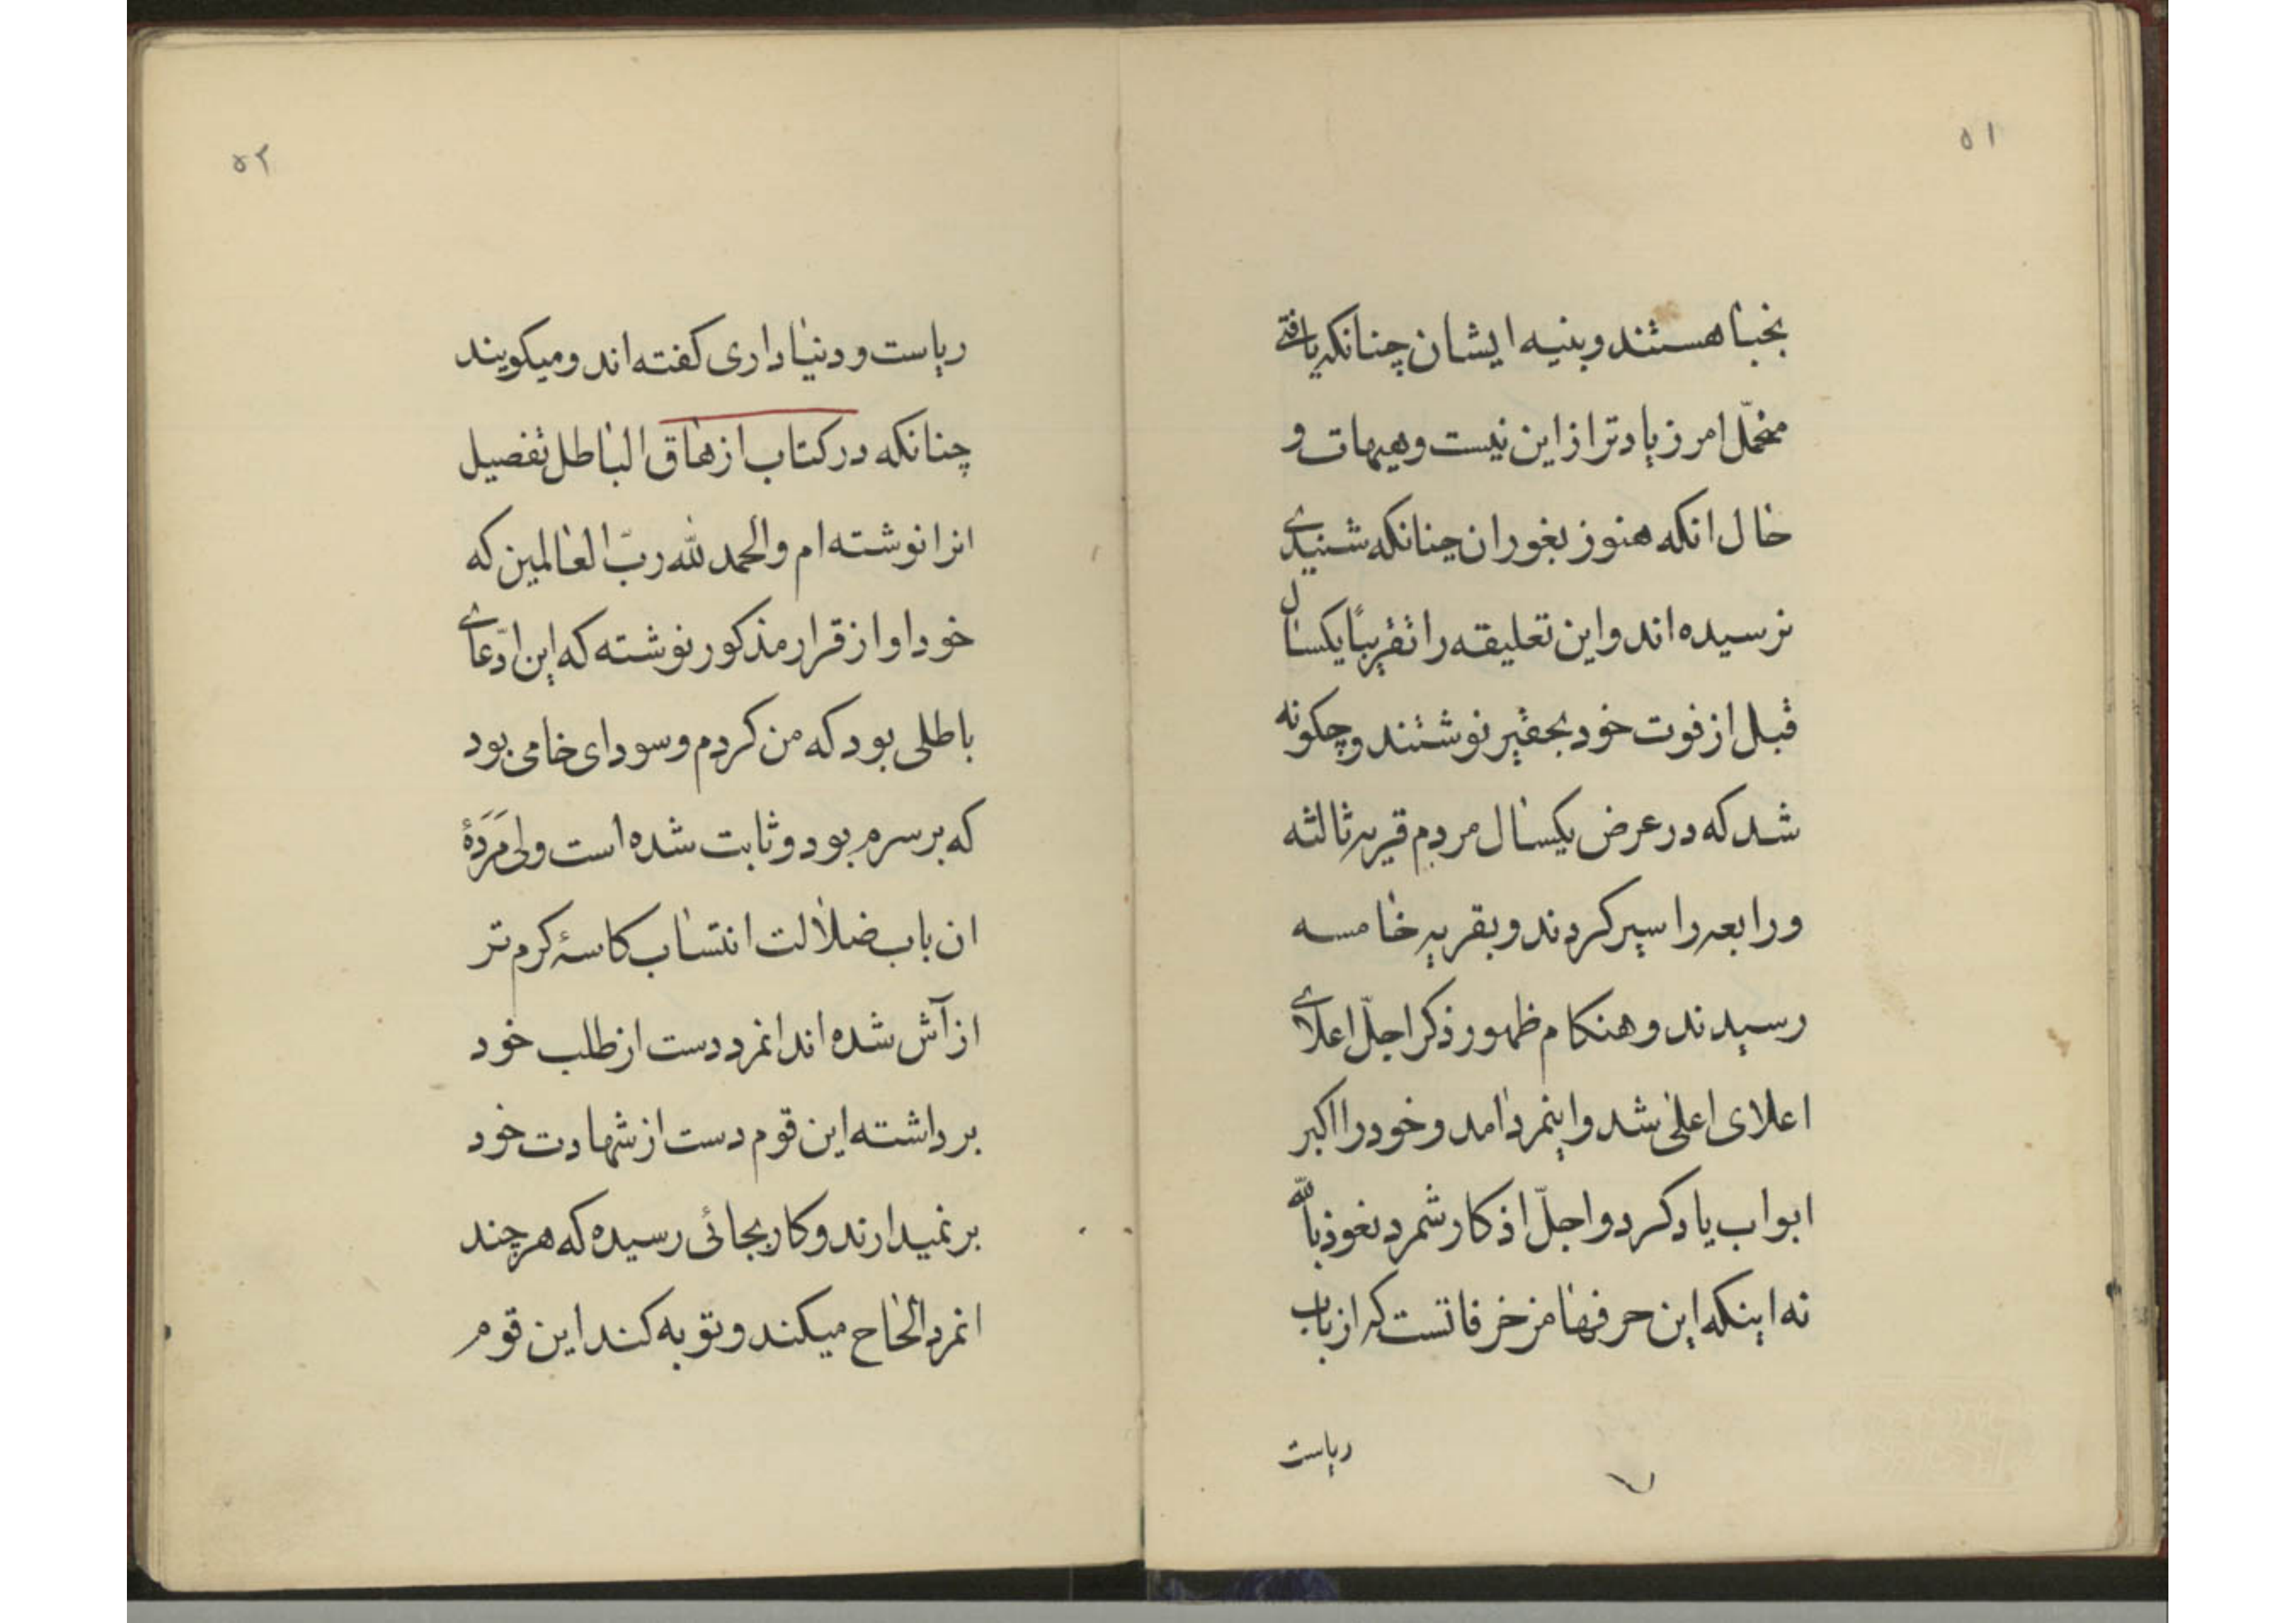 ۵۱
نجبا هستند و بنیه ایشان چنانکه یافتی
متحمّل امر زیادتر از این نیست و هیهات و
حال انکه هنوز بغور ان چنانکه شنیدی
نرسیده اند و این تعلیقه را تقریباً یکسال
قبل از فوت خود بحقیر نوشتند و چکونه
شد که در عرض یکسال مردم قریه ثالثه
و رابعه را سیر کردند و بقریه خامسه
رسیدند و هنکام ظهور ذکر اجلّ اعلای
اعلای اعلی شد و اینمرد امد و خود را اکبر
ابواب یاد کرد و اجلّ اذکار شمرد نعوذ بالله
نه اینکه این حرفها مزخرفاتست که از باب
ریاست
۵۲
ریاست و دنیاداری کفته اند و میکویند
چنانکه در کتاب ازهاق الباطل تفصیل
انرا نوشته ام و الحمد لله ربّ العالمین که
خود او از قرار مذکور نوشته که این ادّعای
باطلی بود که من کردم و سودای خامی بود
که بر سرم بود و ثابت شده است ولی مَرَدَۀ
ان باب ضلالت انتساب کاسۀ کرم تر
از آش شده اند انمرد دست از طلب خود
برداشته این قوم دست از شهادت خود
بر نمیدارند و کار بجائی رسیده که هر چند
انمرد الحاح میکند و توبه کند این قوم